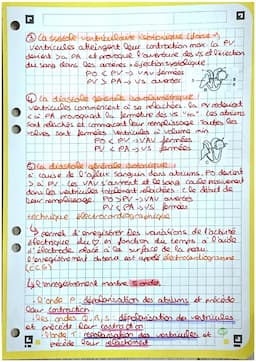 ③ La systole ventriculaire isotonique (durée)
ventricules atteignent leur contraction max la PV
devient > à PA et provoque l'ouverture des VS et l'éjection
du sang dans les artères = éjection systolique
PO < PV → VAV fermées
PV > PA → VS ouvertes
④ La diastole générale isovolumétrique :
ventricules commencent à se relâcher, la PV
< à PA provoquant la fermeture des VS les atriums
sont relâchés et commencent leur remplissage toutes les
valves sont fermées ventricules à volume min
PO < PV → VAV fermées
PV < PA → VS fermées
⑤ La diastole générale isotonique :
à cause de l'afflux sanguin dans atriums, PO devient
> à PV les VAV s'ouvrent et le sang coule
dans les ventricules totalement relâchés : le début de
leur remplissage. PO > PV → VAV ouvertes
PV < PA → VS fermées
technique électrocardiographique
↳ permet d'enregistrer les variations de l'activité
électrique du ♡ en fonction du temps à l'aide
d'électrodes placées à la surface de la peau.
l'enregistrement obtenu est appelé électrocardiogramme
(ECG)
↳ l'enregistrement montre 5 ondes
- l'onde P : dépolarisation des atriums et précède
leur contraction
- les ondes Q, R, S : dépolarisation des ventricules
et précède leur contraction
- l'onde T : repolarisation des ventricules et
précède leur relâchement